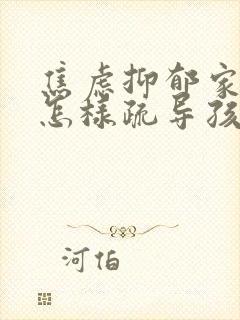 焦虑抑郁家
怎样疏导孩
河伯